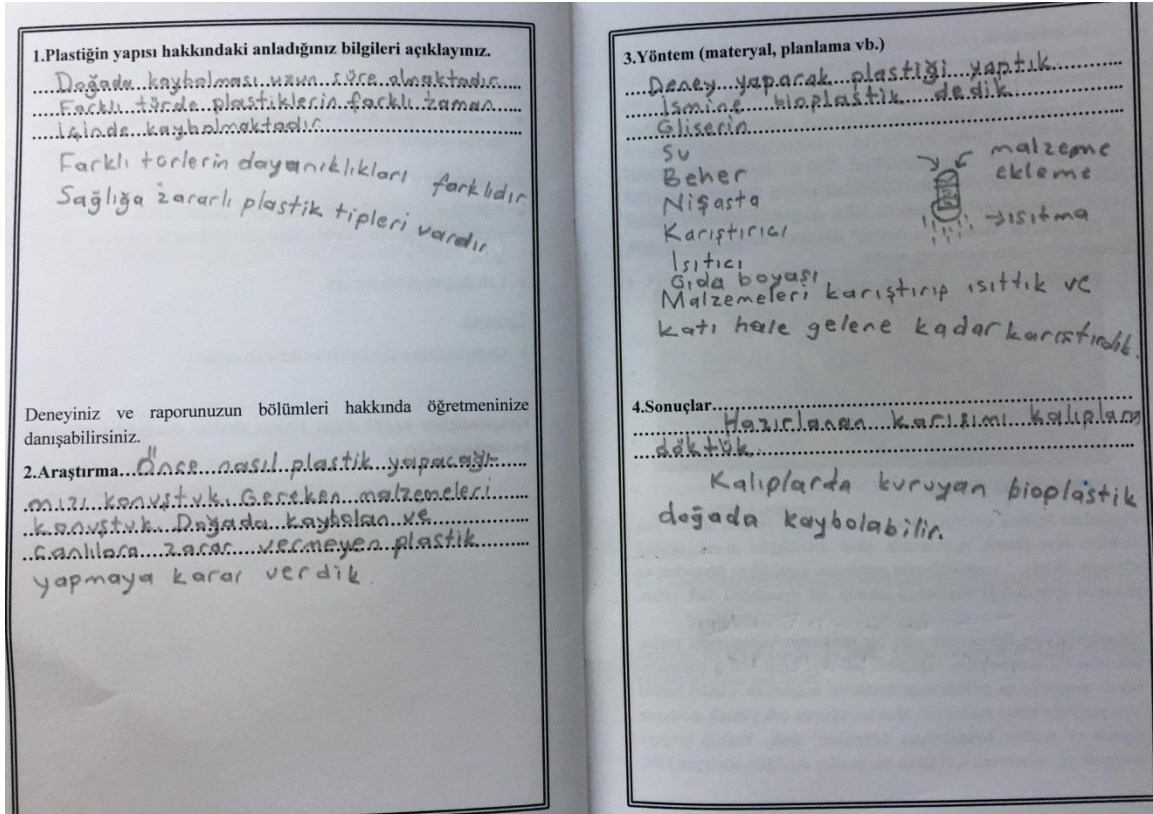 1.Plastiğin yapısı hakkındaki anladığınız bilgileri açıklayınız.
Doğada kaybolması uzun süre almaktadır.
Farklı türde plastiklerin farklı zaman
içinde kaybolmaktadır
Farklı törlerin dayanıklıkları farklıdır.
Sağlığa zararlı plastik tipleri vardır
Deneyiniz ve raporunuzun bölümleri hakkında öğretmeninize
danışabilirsiniz.
2.Araştırma...Önce nasıl plastik yapacağı-
mızı konuştuk. Gereken malzemeleri
konuştuk. Doğada kaybolan ve
canlılara zarar vermeyen plastik
yapmaya karar verdik.
3.Yöntem (materyal, planlama vb.)
Deney yaparak plastiği yaptık
İsmine bioplastik dedik
Gliserin
Su
Beher
Nişasta
Karıştırıcı
Isıtıcı
Gıda boyası
malzeme
ekleme
→ısıtma
Malzemeleri karıştırıp ısıttık ve
katı hale gelene kadar karıştırdık.
4.Sonuçlar
Hazırlanan karışımı kalıplara
döktük.
Kalıplarda kuruyan bioplastik
doğada kaybolabilir.